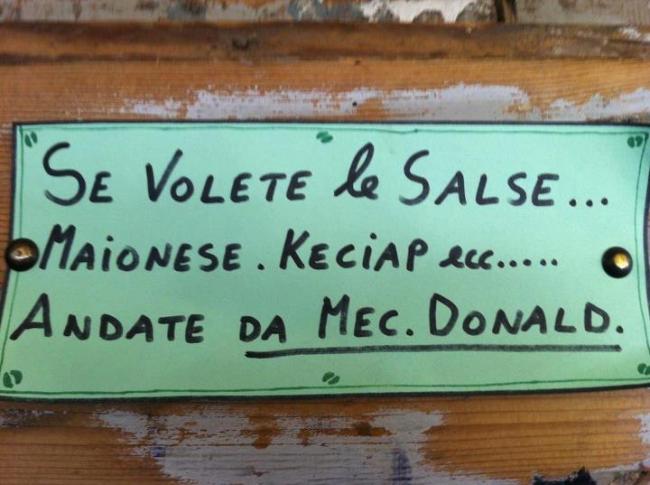 SE VOLETE le SALSE...
MAIONESE. KECIAP ecc.....
ANDATE DA MEC. DONALD.